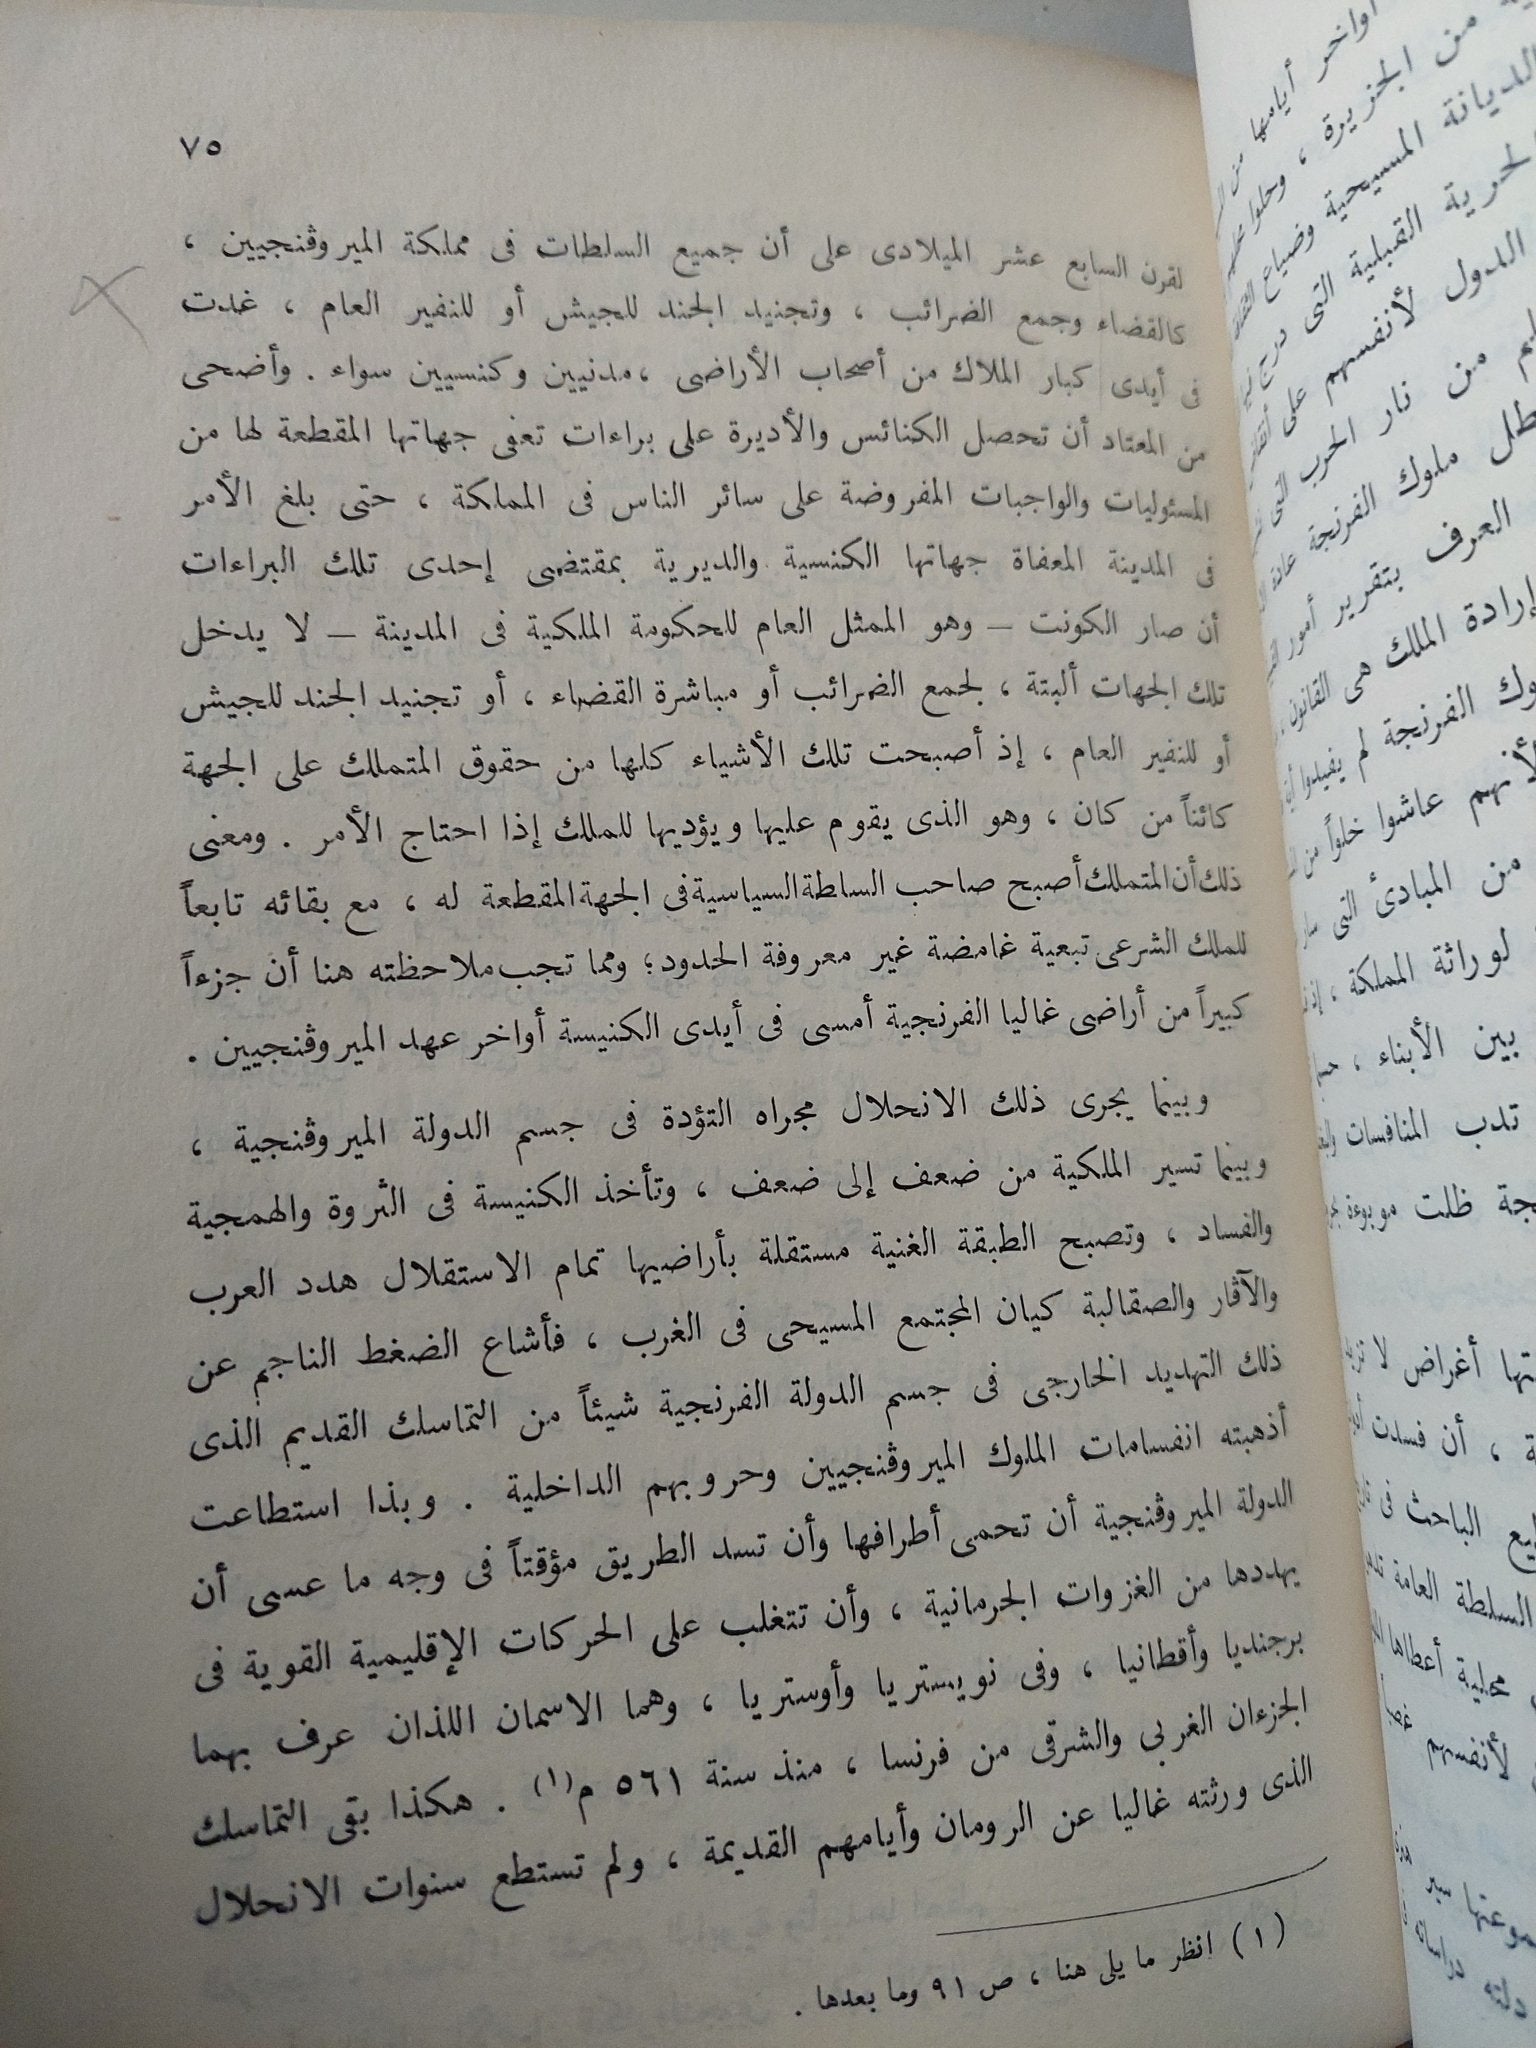 ٧٥
لقرن السابع عشر الميلادى على أن جميع السلطات فى مملكة الميروڤنجيين ،
كالقضاء وجمع الضرائب ، وتجنيد الجند للجيش أو للنفير العام ، غدت
فى أيدى كبار الملاك من أصحاب الأراضى ، مدنيين وكنسيين سواء . وأضحى
من المعتاد أن تحصل الكنائس والأديرة على براءات تعفى جهاتها المقطعة لها من
المسئوليات والواجبات المفروضة على سائر الناس فى المملكة ، حتى بلغ الأمر
فى المدينة المعفاة جهاتها الكنسية والديرية بمقتضى إحدى تلك البراءات
أن صار الكونت — وهو الممثل العام للحكومة الملكية فى المدينة — لا يدخل
تلك الجهات ألبتة ، لجمع الضرائب أو مباشرة القضاء ، أو تجنيد الجند للجيش
أو للنفير العام ، إذ أصبحت تلك الأشياء كلها من حقوق المتملك على الجهة
كائناً من كان ، وهو الذى يقوم عليها ويؤديها للملك إذا احتاج الأمر . ومعنى
ذلك أن المتملك أصبح صاحب السلطة السياسية فى الجهة المقطعة له ، مع بقائه تابعاً
للملك الشرعى تبعية غامضة غير معروفة الحدود ؛ ومما تجب ملاحظته هنا أن جزءاً
كبيراً من أراضى غاليا الفرنجية أمسى فى أيدى الكنيسة أواخر عهد الميروڤنجيين .
وبينما يجرى ذلك الانحلال مجراه التؤدة فى جسم الدولة الميروڤنجية ،
وبينما تسير الملكية من ضعف إلى ضعف ، وتأخذ الكنيسة فى الثروة والهمجية
والفساد ، وتصبح الطبقة الغنية مستقلة بأراضيها تمام الاستقلال هدد العرب
والآڤار والصقالبة كيان المجتمع المسيحى فى الغرب ، فأشاع الضغط الناجم عن
ذلك التهديد الخارجى فى جسم الدولة الفرنجية شيئاً من التماسك القديم الذى
أذهبته انفسامات الملوك الميروڤنجيين وحروبهم الداخلية . وبذا استطاعت
الدولة الميروڤنجية أن تحمى أطرافها وأن تسد الطريق مؤقتاً فى وجه ما عسى أن
يهددها من الغزوات الجرمانية ، وأن تتغلب على الحركات الإقليمية القوية فى
برجنديا وأقطانيا ، وفى نويستريا وأوستريا ، وهما الاسمان اللذان عرف بهما
الجزءان الغربى والشرقى من فرنسا ، منذ سنة ٥٦١ م(١) . هكذا بقى التماسك
الذى ورثته غاليا عن الرومان وأيامهم القديمة ، ولم تستطع سنوات الانحلال
(١) انظر ما يلى هنا ، ص ٩١ وما بعدها .
أواخر أيامها من
من الجزيرة ، وحلوا
الديانة المسيحية وضياع
الحرية القبلية التى درج
الدول لأنفسهم على
من نار الحرب التى
ملوك الفرنجة
العرف بتقرير أمور
إرادة الملك هى القانون
الفرنجة لم يفيدوا
لأنهم عاشوا خلواً من
من المبادئ التى
لوراثة المملكة ،
بين الأبناء ،
تدب المنافسات
ظلت موبوءة
أغراض لا
، أن فسدت
الباحث فى
السلطة العامة
محلية أعطاها
لأنفسهم